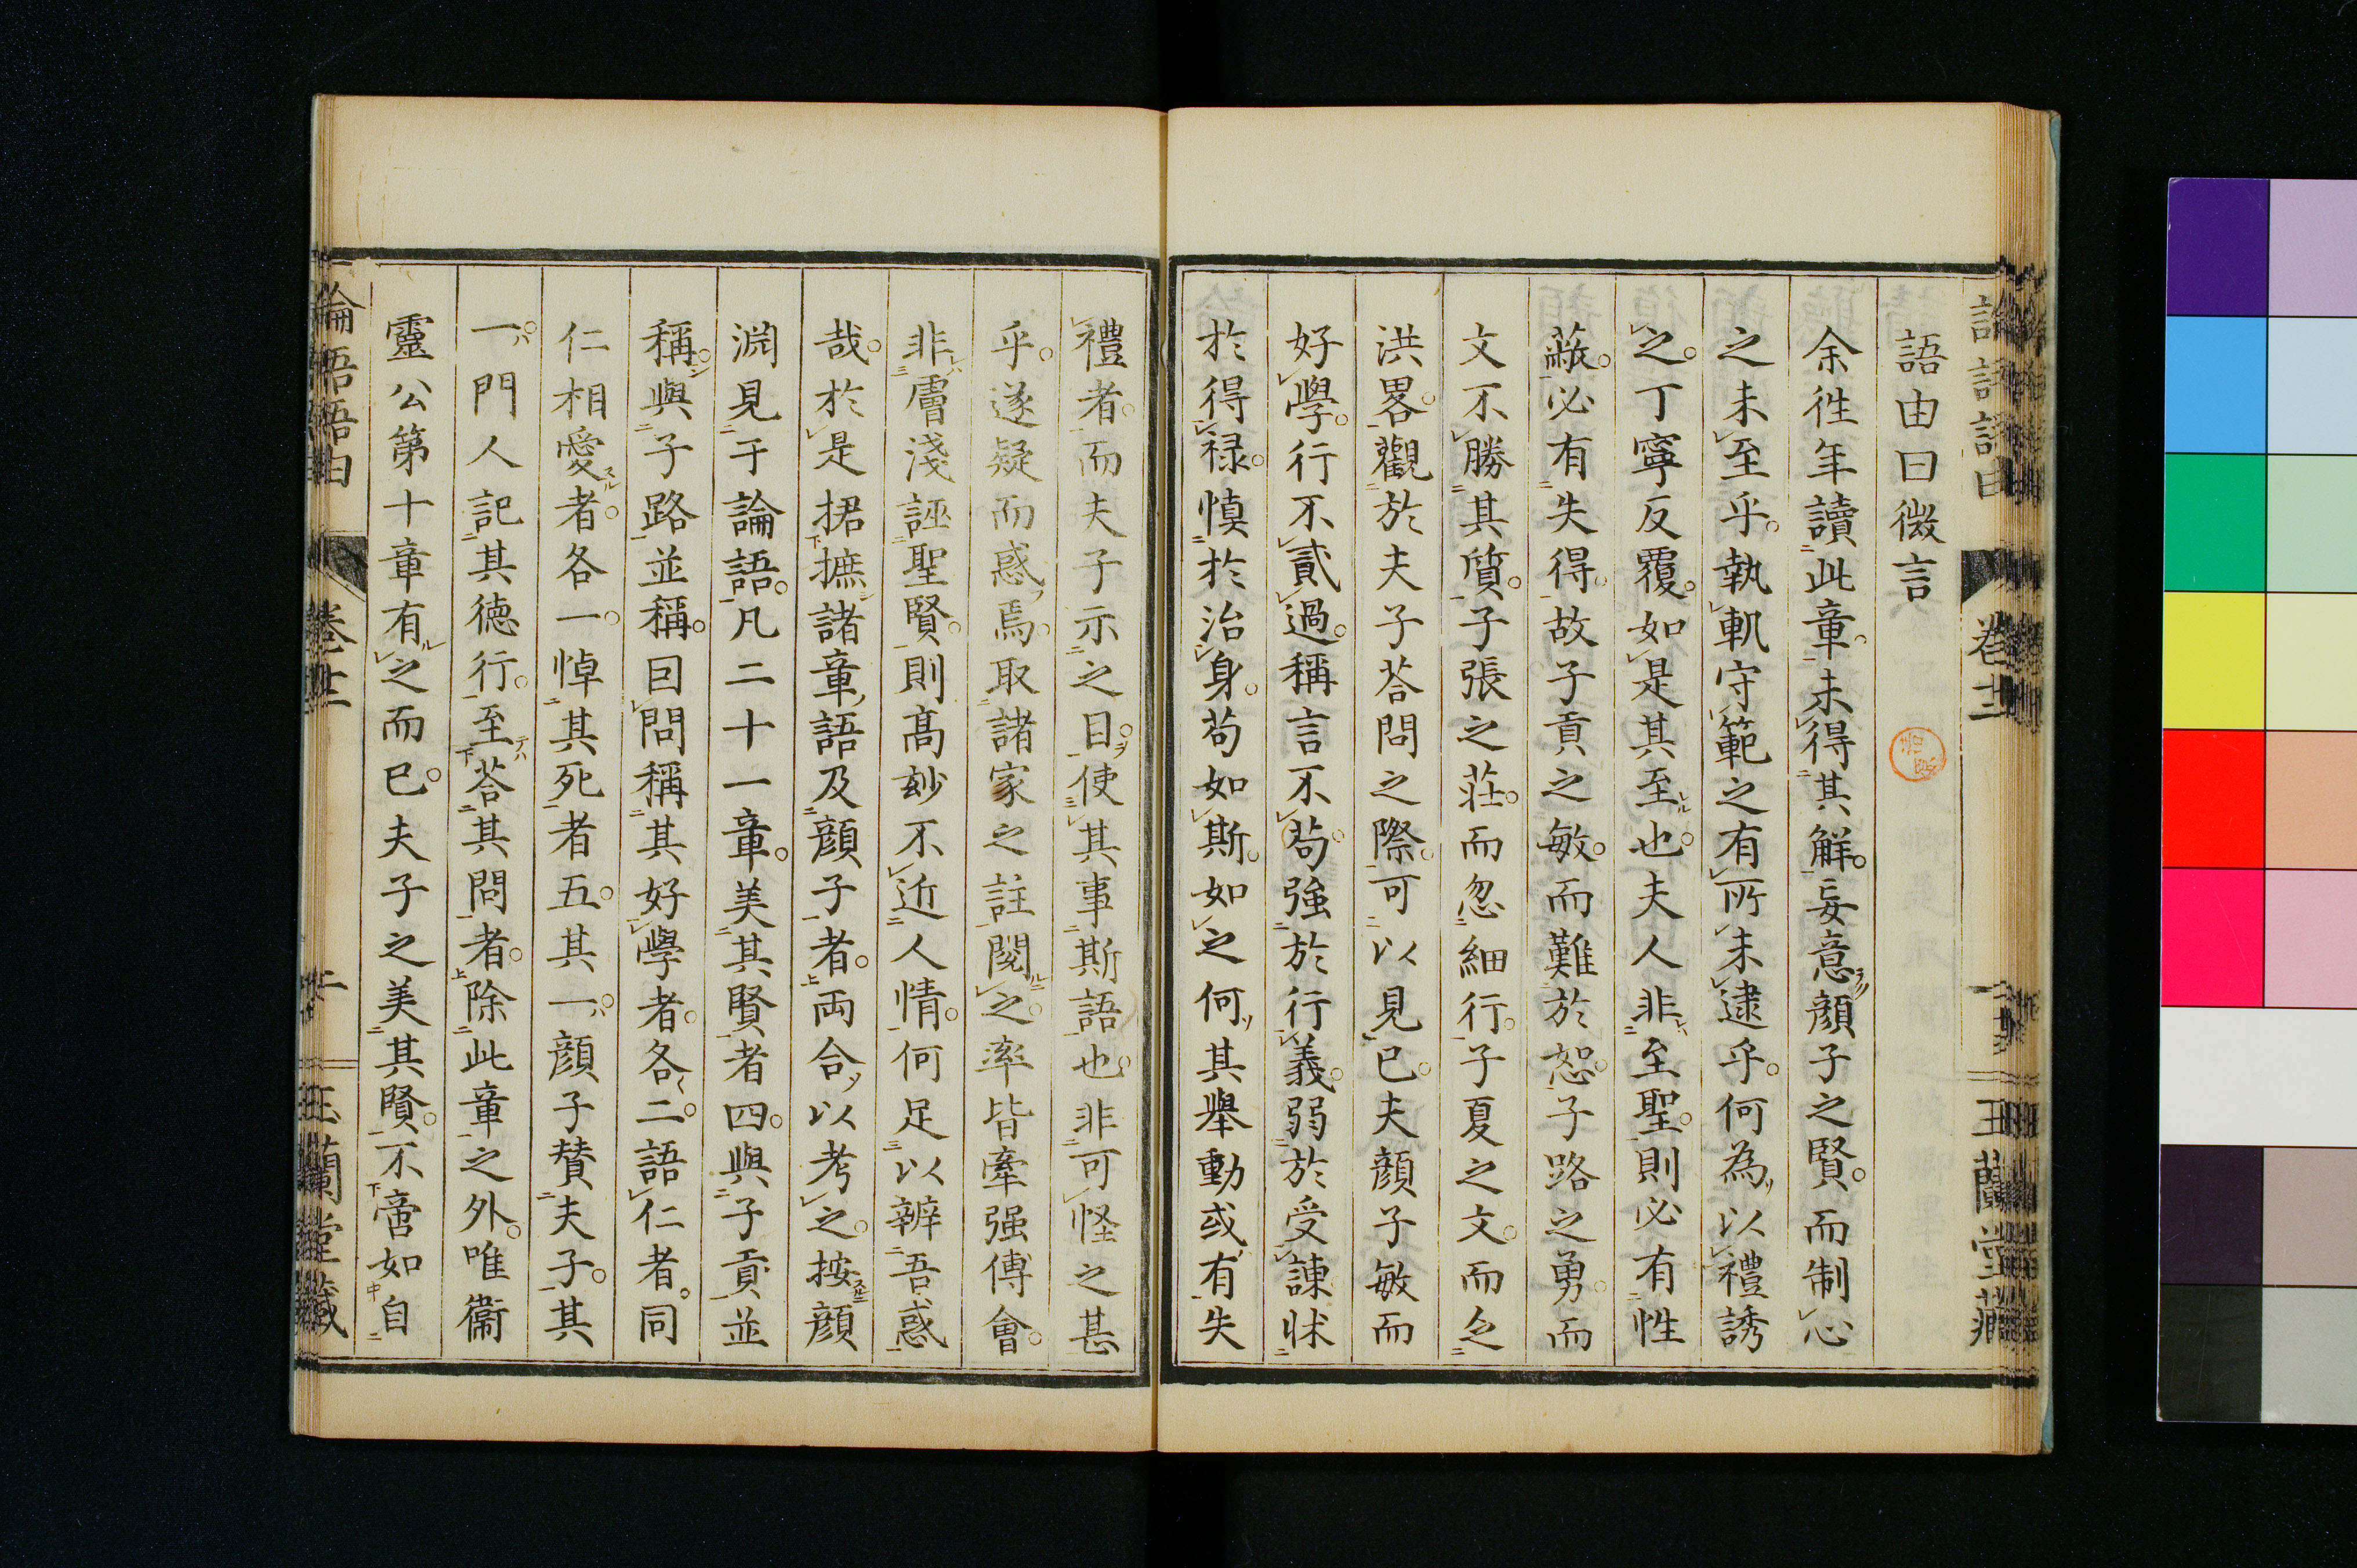 語由曰微言
余徃年讀此章。未得其解。妄意顔子之賢。而制心
之未至乎。執軌守範之有所未逮乎。何為以禮誘
之。丁寧反覆。如是其至也。夫人非至聖。則必有性
蔽。必有失得。故子貢之敏。而難於恕。子路之勇。而
文不勝其質。子張之莊。而忽細行。子夏之文。而乏
洪畧。觀於夫子荅問之際。可以見已。夫顔子敏而
好學。行不貳過。稱言不苟。強於行義。弱於受諫。怵
於得禄。慎於治身。苟如斯。如之何其舉動或有失
禮者。而夫子示之目。使其事斯語也。非可怪之甚
乎。遂疑而惑焉。取諸家之註閱之。率皆牽强傅會。
非膚淺誣聖賢。則高玅不近人情。何足以辨吾惑
哉。於是捃摭諸章語及顔子者。両合以考之。按顔
淵見于論語。凡二十一章。美其賢者四。與子貢並
稱。與子路並稱。回問稱其好學者。各二。語仁者。同
仁相愛者。各一。悼其死者五。其一。顔子賛夫子。其
一。門人記其德行。至荅其問者。除此章之外。唯衞
靈公第十章有之而已。夫子之美其賢。不啻如自
論語語由
卷十二
玉蘭堂藏